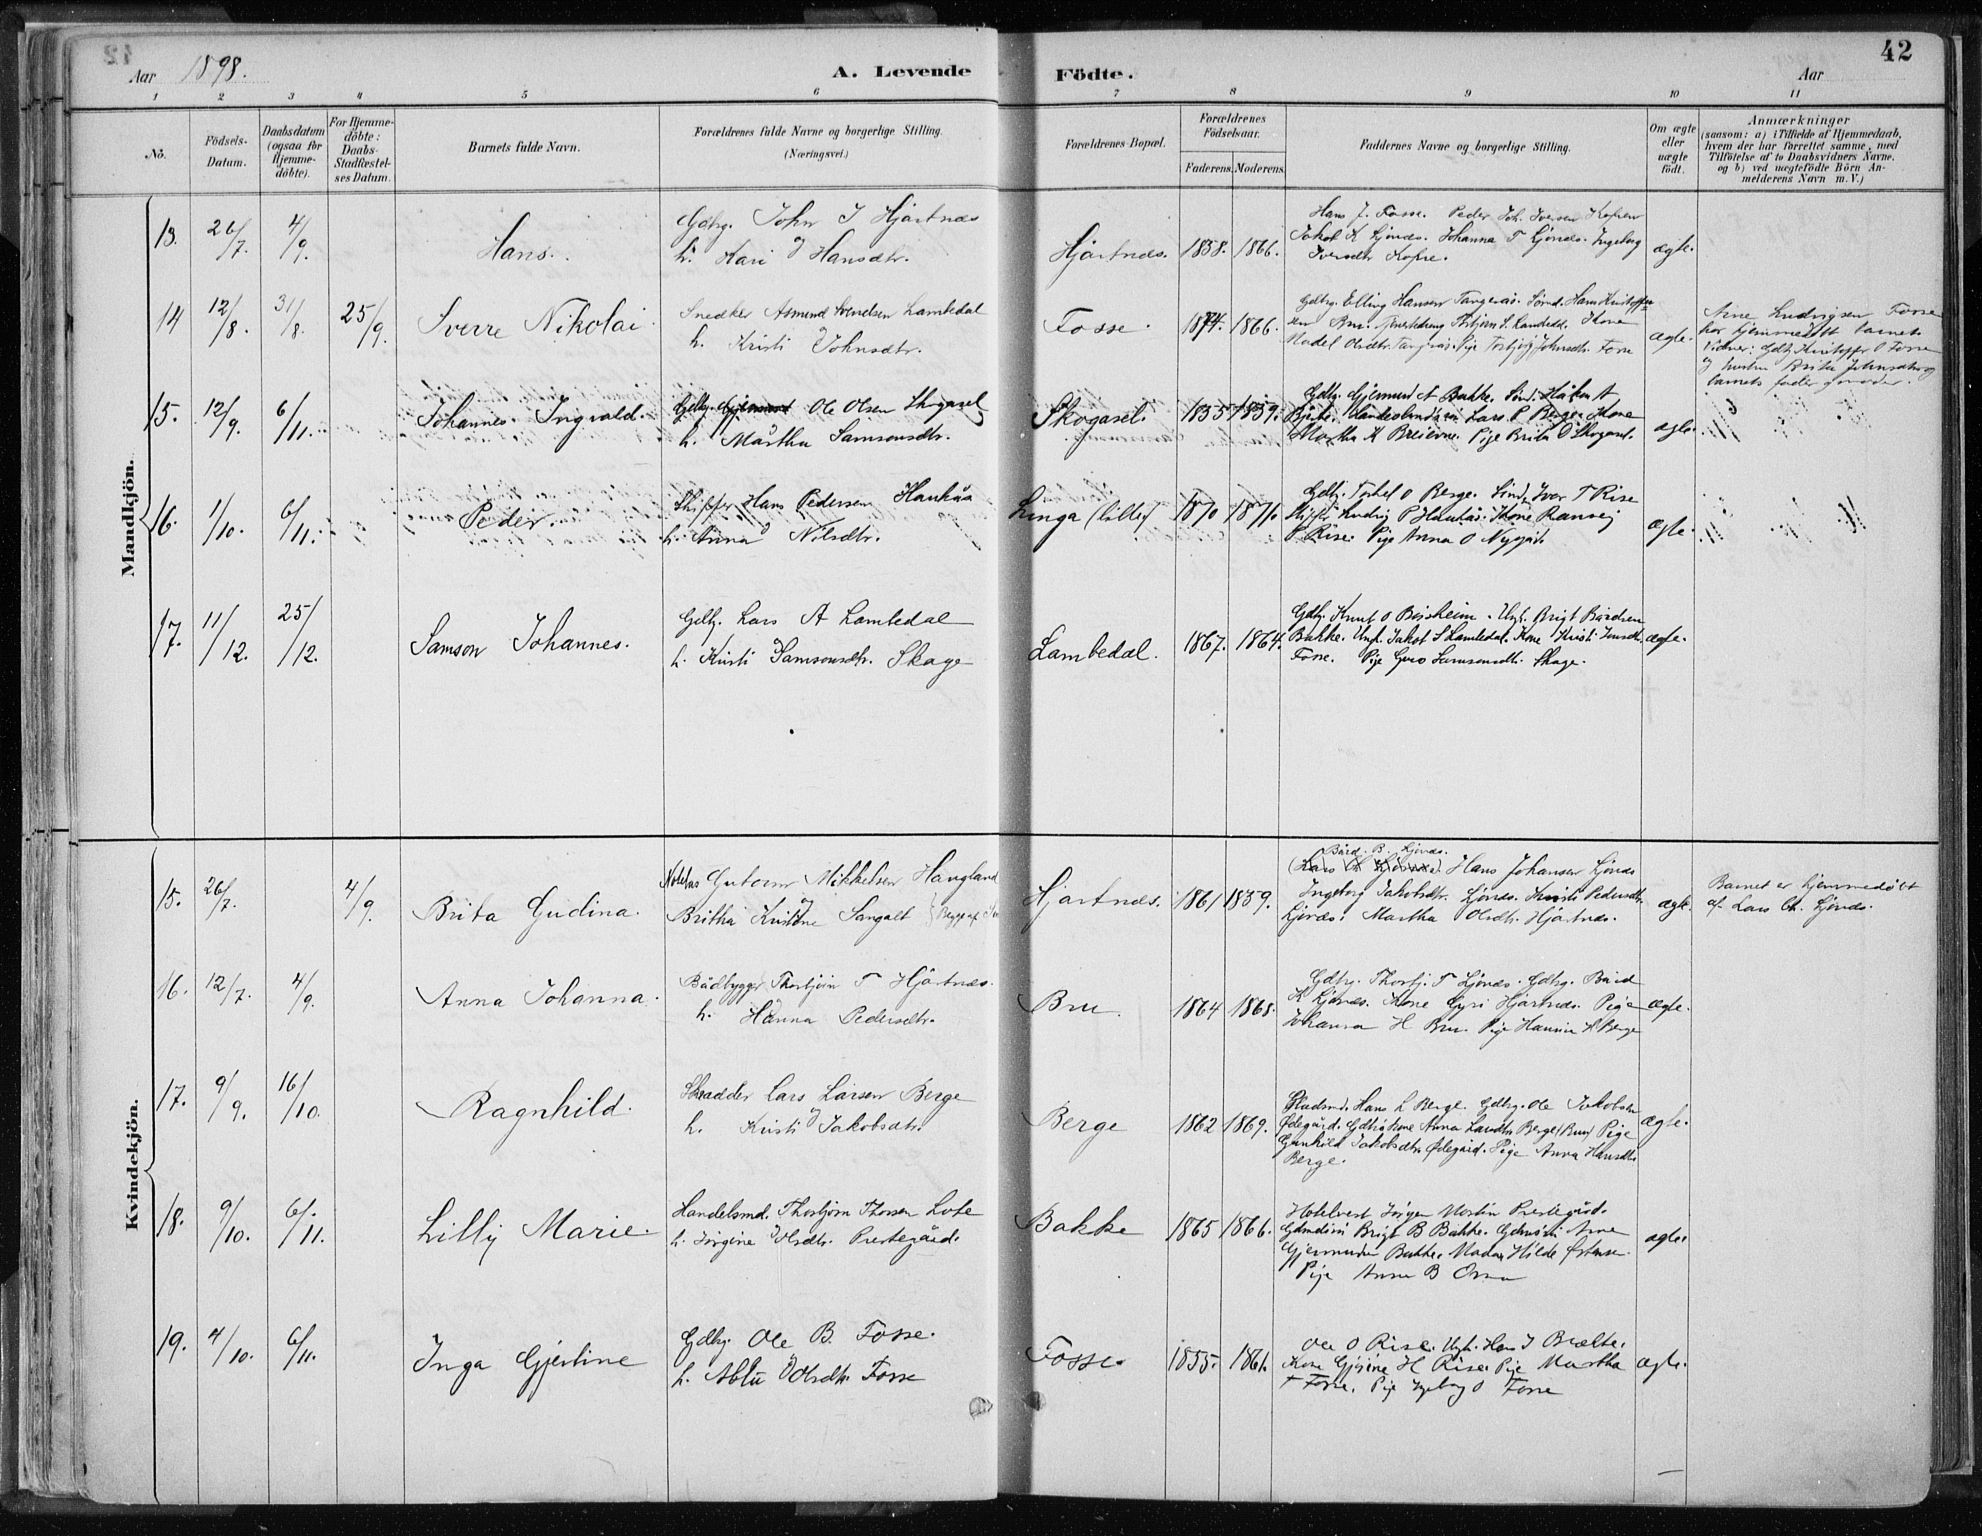 42
Aar 1898.
A. Levende Födte.
Aar
1 2 3 4 5 6 7 8 9 10 11
No.
Födsels-Datum.
Daabsdatum (ogsaa for Hjemme-döbte).
For Hjemme-döbte: Daabs-Stadfæstel-ses Datum.
Barnets fulde Navn.
Forældrenes fulde Navne og borgerlige Stilling.
(Næringsvei.)
Forældrenes Bopæl.
Forældrenes Födselsaar.
Faderens. Moderens.
Faddernes Navne og borgerlige Stilling.
Om ægte eller uægte födt.
Anmærkninger
(saasom: a) i Tilfælde af Hjemmedaab,
hvem der har forrettet samme, med
Tilföielse af to Daabsvidners Navne.
og b) ved uægtefödte Börn An-
melderens Navn m. V.)
Mandkjön.
13. 26/7. 4/9. Hans.
Gdbg. John J Hjartnæs
h. Kari Hansdtr.
Hjartnæs. 1858. 1866.
Hans J. Fosse. Peder Joh. Iversen Kofren
Jakob K Ljønes. Johanna T Ljønes. Ingeborg
Iversdtr Kofre.
ægte.
14 12/8. 31/8. 25/9. Sverre Nikolai.
Snedker Asmund Svendsen Lambedal
h. Kristi Johnsdtr.
Fosse. 1874. 1866.
Gdbg. Elling Hansen Tangerås. Sønd. Hans Kristoffer-
sen Bru. Tjenestedreng Thorbjørn S. Lambedal. Kone
Madel Olsdtr. Tangerås. Pige Torbjørg Johnsdtr. Fosse
ægte.
Arne Ludvigsen Fosse
har hjemmedøbt barnet.
Vidner: Gdbg Kristoffer O Fosse
og hustru Brita Johnsdtr og
barnets fader & moder.
15. 12/9. 6/11. Johannes Ingvald.
Gdbg. Ole Olsen Skogasel
h. Martha Samsonsdtr.
Skogasel. 1855 1859.
Gdbg. Gjermund A Bakke. Sønd. Håkon A
Bjørke. Handelsbud Lars P Berge. Kone
Martha K Breievne. Pige Brita O Skogasel.
ægte.
16. 1/10. 6/11. Peder.
Skipper Hans Pedersen Haukås
h. Anna Nilsdtr.
Linga (lille) 1870 1876.
Gdbg. Torkel O Berge. Sønd. Iver T Rise
Skipper Ludvig P Haukås. Kone Ransej
P Rise. Pige Anna O Nygård.
ægte.
17. 11/12. 25/12. Samson Johannes.
Gdbg. Lars A Lambedal
h. Kristi Samsonsdtr. Skage
Lambedal. 1867. 1864.
Gdbg. Knut O Børsheim. Ungk. Brigt Bårdsen
Bakke. Ungk. Jakob S Lambedal. Kone Kristi Jensdtr.
Fosse. Pige Guro Samsonsdtr. Skage.
ægte.
Kvindekjön.
15. 26/7. 4/9. Brita Gudina.
Notebas Guttorm Mikkelsen Haugland
Britha Kristine Sangalt
Hjartnæs. 1861 1859.
Bård. B. Ljønes.
(Lars Ch Ljønes) Hans Johansen Ljønes
Ingeborg Jakobsdtr. Ljønes. Kristi Pedersdtr.
Ljønes. Martha Olsdtr. Hjartnæs.
ægte.
Barnet er hjemmedøbt
af Lars Ch. Ljønes.
16. 12/7. 4/9. Anna Johanna.
Bådbygger Thorbjørn T Hjartnæs.
h. Hanna Pedersdtr.
Bru. 1864 1868.
Gdbg. Thorbj. T Ljønes. Gdbg. Bård
K Ljønes. Kone Gyri Hjartnæs. Pige
Johanna H Bru. Pige Hannie K Berge
ægte.
17. 9/9. 16/10. Ragnhild.
Skradder Lars Larsen Berge
h. Kristi Jakobsdtr.
Berge 1862 1869.
Pladsmd. Hans L Berge. Gdbg. Ole Jakobsen
Ødegård. Gdbrskone Anna Larsdtr. Berge (Bru) Pige
Gunhild Jakobsdtr. Ødegård. Pige Anna Hansdtr.
Berge.
ægte.
18. 9/10. 6/11. Lilly Marie.
Handelsmd. Thorbjørn Thorsen Lote
h. Jørgine Olsdtr. Prestegård.
Bakke 1865 1866.
Hotelvert Jørgen Martin Prestegård.
Brigt B Bakke. Arne
Gjermunden Bakke. Madam Hilde Østensen.
Pige Anna B
ægte.
19. 4/10. 6/11. Inga Gjertine
Gdbg. Ole B. Fosse.
h. Ablu Olsdtr. Fosse
Fosse. 1855. 1861.
Ole O Rise. Ungk. Hans J Brælte.
Kone Gjørine H Rise. Pige Martha
T Fosse. Pige Ingeborg O Fosse
ægte.